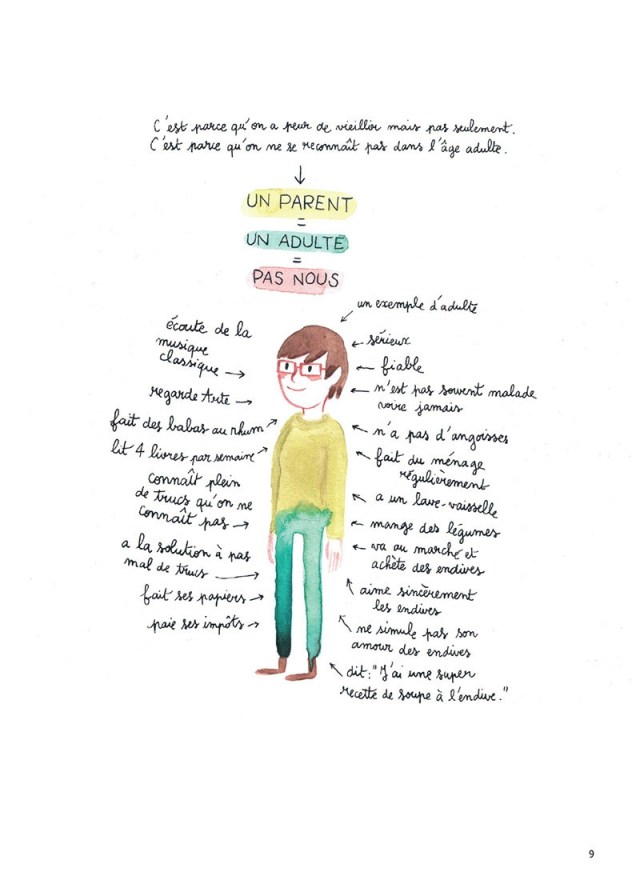 C'est parce qu'on a peur de vieillir mais pas seulement.
C'est parce qu'on ne se reconnaît pas dans l'âge adulte.
UN PARENT
=
UN ADULTE
=
PAS NOUS
un exemple d'adulte
écoute de la
musique
classique
regarde Arte
fait des babas au rhum
lit 4 livres par semaine
connaît plein
de trucs qu'on ne
connaît pas
a la solution à pas
mal de trucs
fait ses papiers
paie ses impôts
sérieux
fiable
n'est pas souvent malade
voire jamais
n'a pas d'angoisses
fait du ménage
régulièrement
a un lave-vaisselle
mange des légumes
va au marché et
achète des endives
aime sincèrement
les endives
ne simule pas son
amour des endives
dit: "J'ai une super
recette de soupe à l'endive."
9